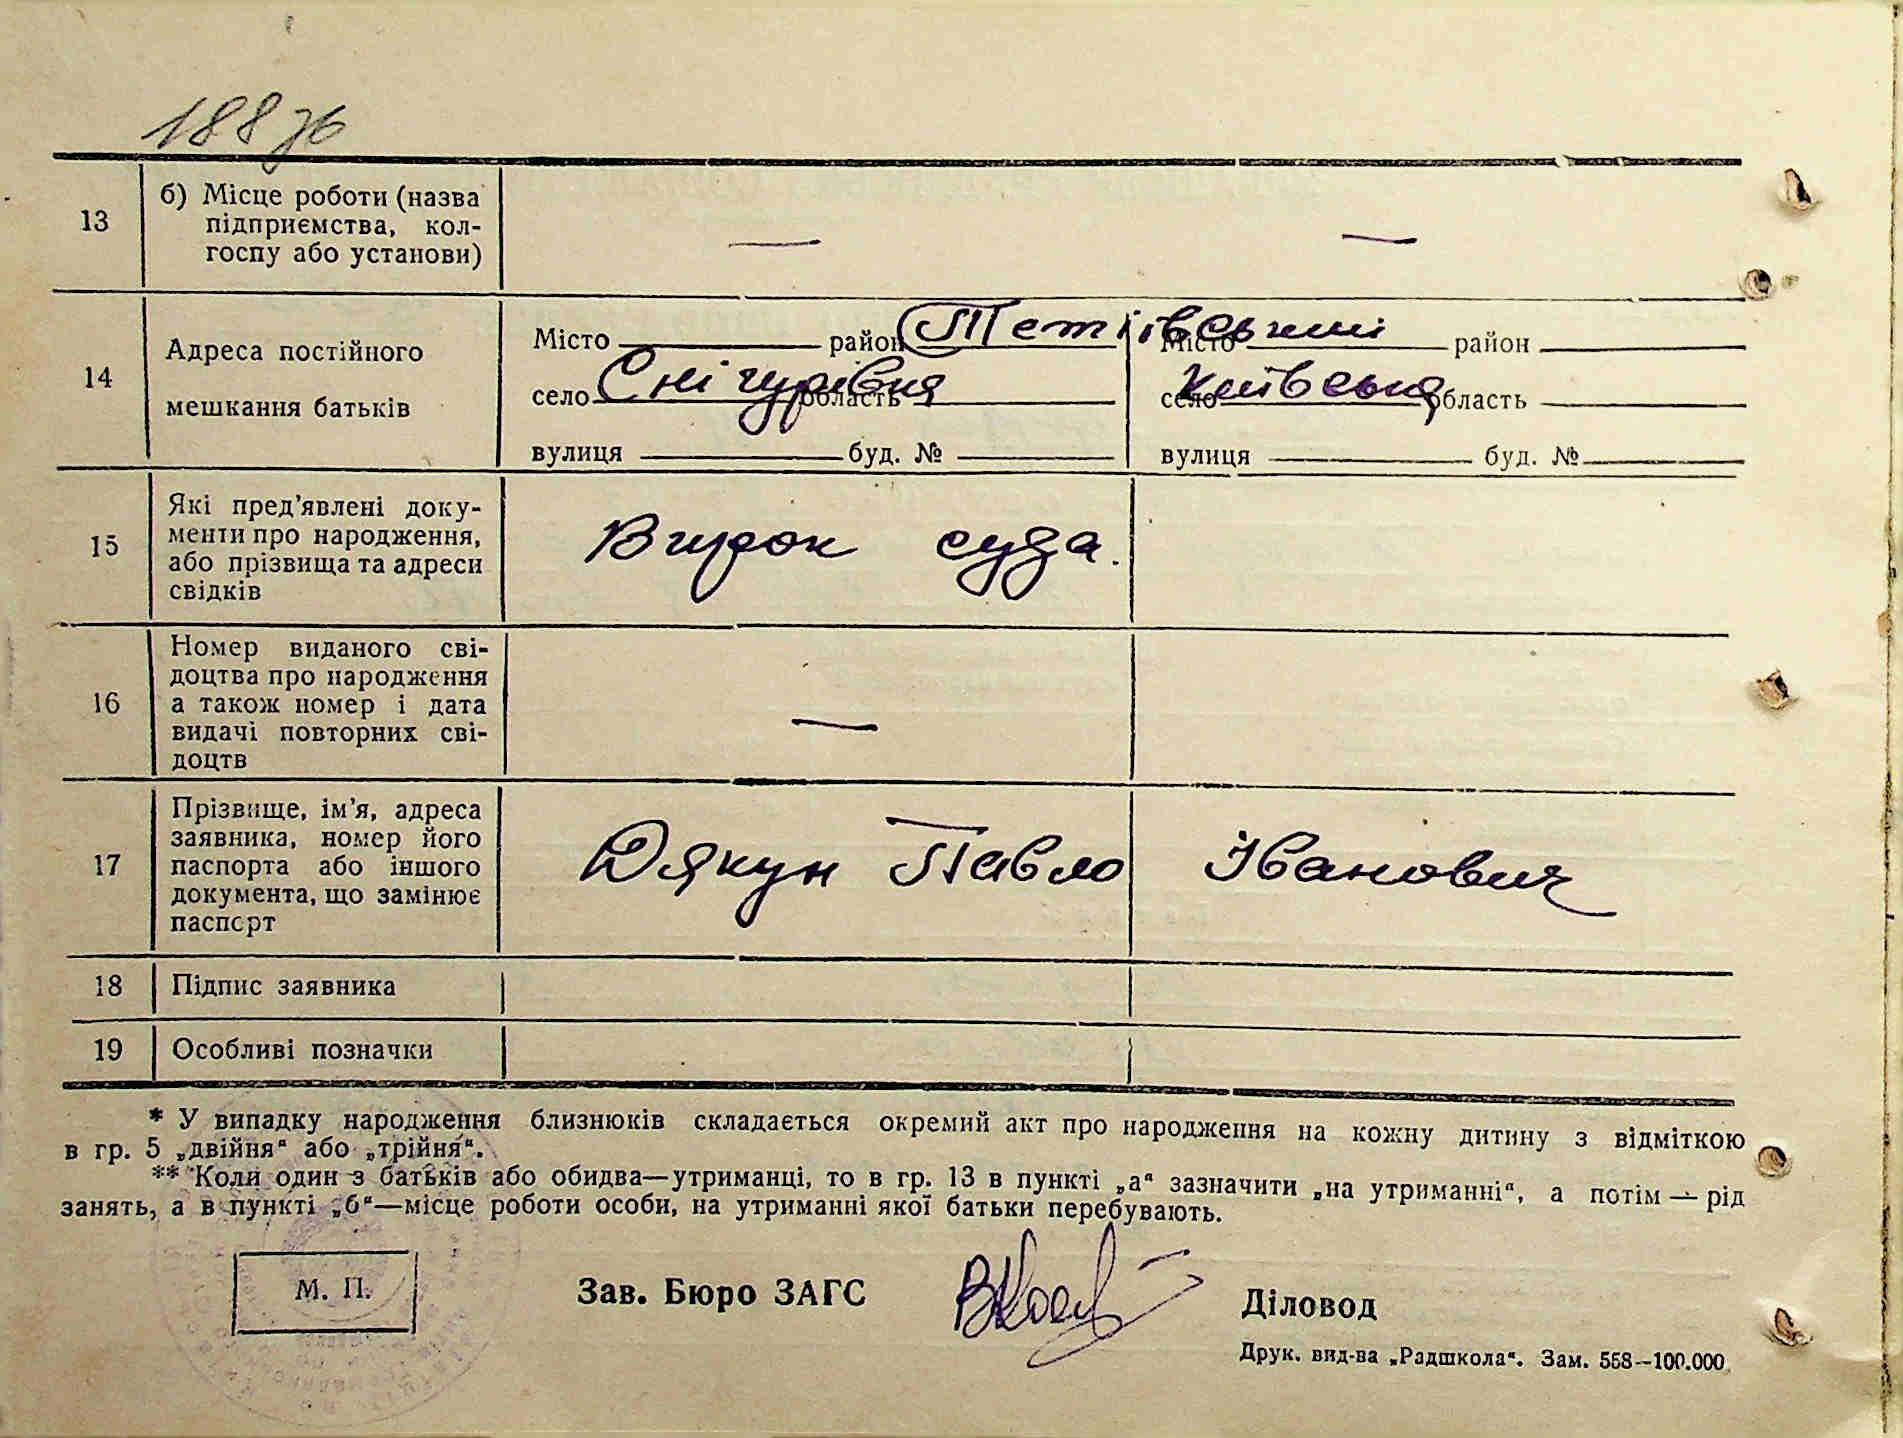 188 зв
13 б) Місце роботи (назва
підприємства, кол-
госпу або установи) — —
14 Адреса постійного
мешкання батьків
Місто район Тетіївський Місто район
село Снігурівка область село Київська область
вулиця буд. № вулиця буд. №
15 Які пред’явлені доку-
менти про народження,
або прізвища та адреси
свідків
Вирок суда.
16 Номер виданого сві-
доцтва про народження
а також номер і дата
видачі повторних сві-
доцтв
—
17 Прізвище, ім’я, адреса
заявника, номер його
паспорта або іншого
документа, що замінює
паспорт
Дякун Павло Іванович
18 Підпис заявника
19 Особливі позначки
* У випадку народження близнюків складається окремий акт про народження на кожну дитину з відміткою
в гр. 5 „двійня“ або „трійня“.
** Коли один з батьків або обидва—утриманці, то в гр. 13 в пункті „а“ зазначити „на утриманні“, а потім — рід
занять, а в пункті „б“—місце роботи особи, на утриманні якої батьки перебувають.
М. П. Зав. Бюро ЗАГС Діловод
Друк. вид-ва „Радшкола“. Зам. 558—100.000